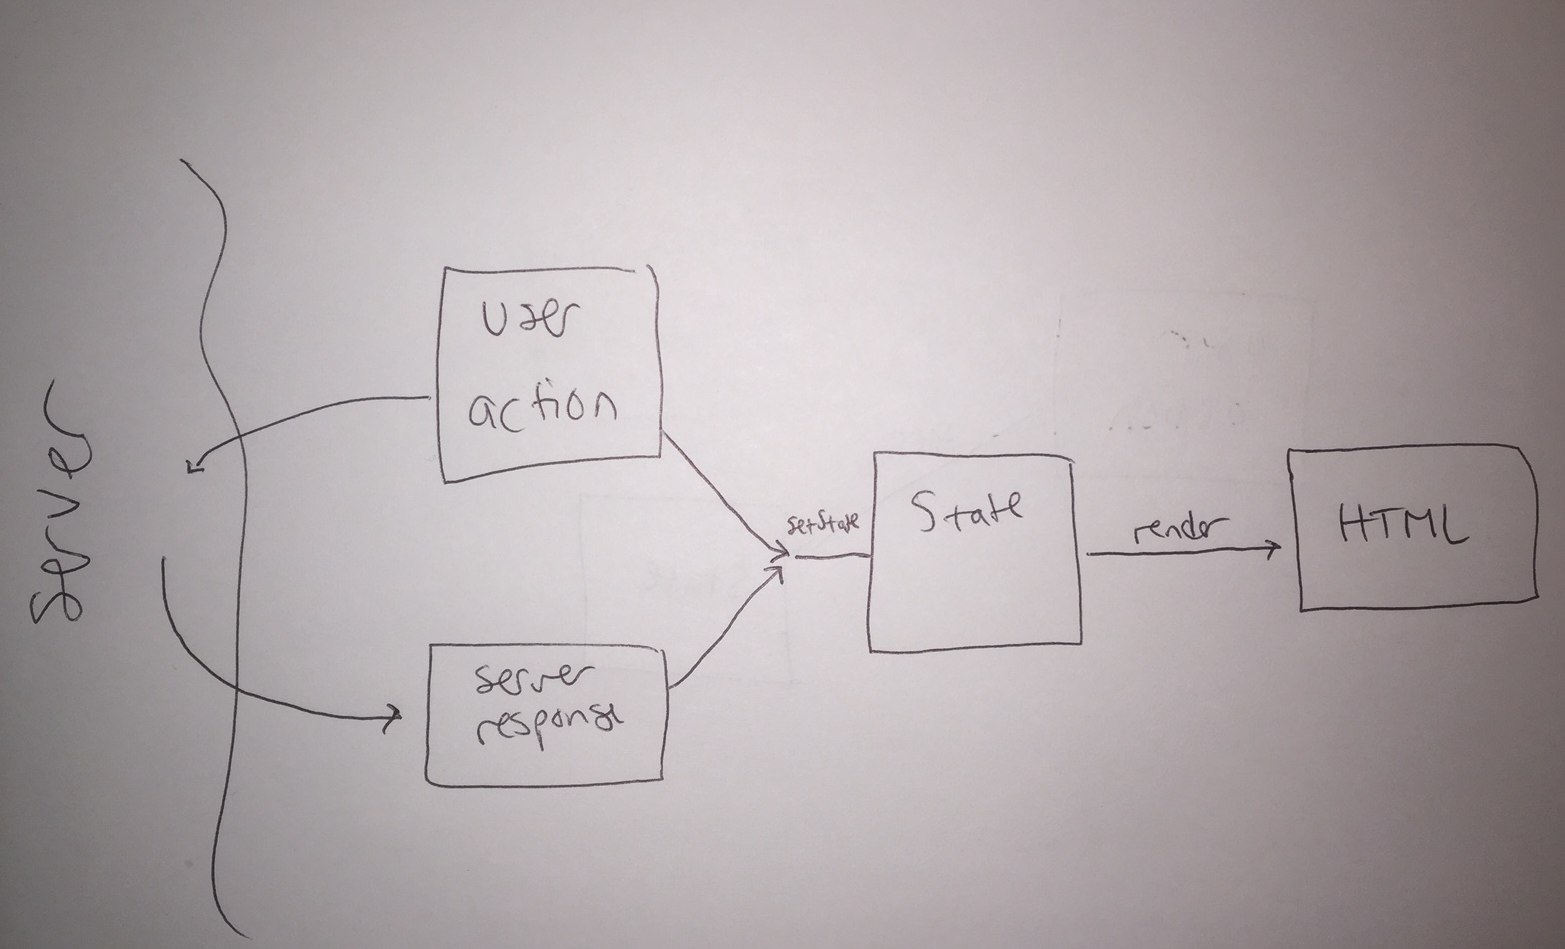 Server
user
action
server
response
setState
State
render
HTML